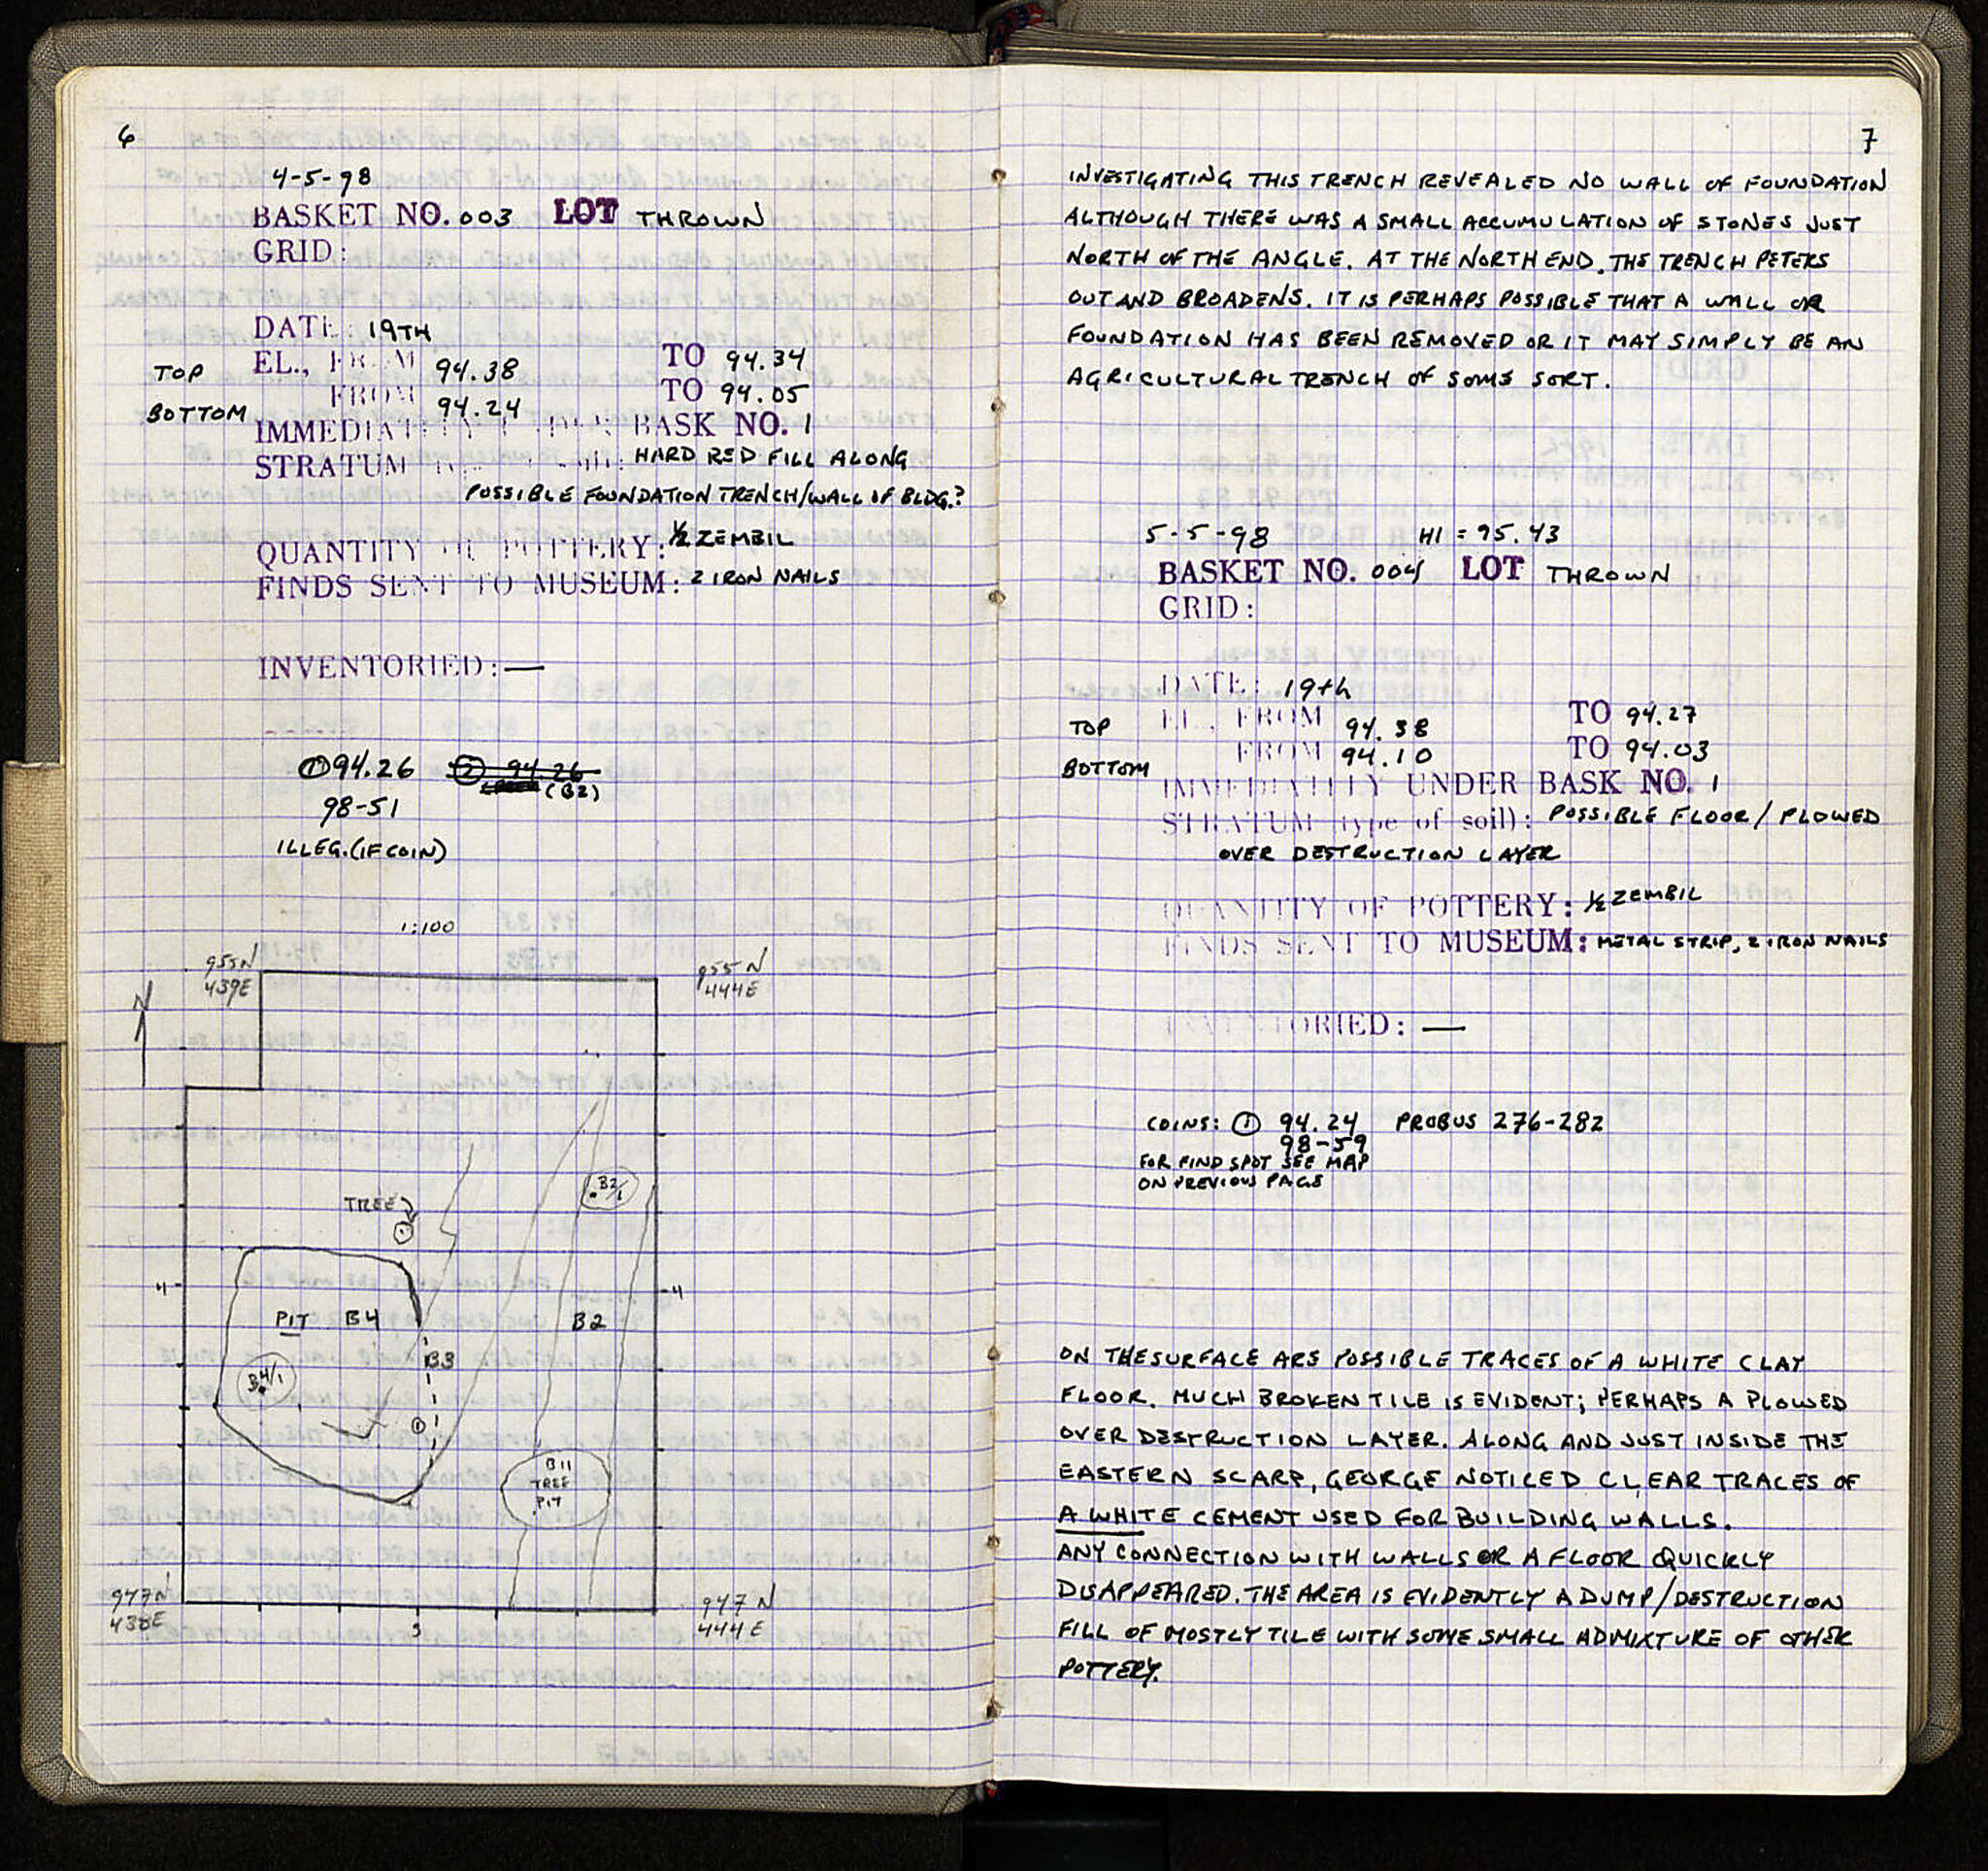 6
4-5-98
BASKET NO. 003 LOT THROWN
GRID:
DATE: 19TH
TOP EL., FROM 94.38 TO 94.34
BOTTOM FROM 94.24 TO 94.05
IMMEDIATELY UNDER BASK NO. 1
STRATUM HARD RED FILL ALONG
POSSIBLE FOUNDATION TRENCH/WALL OF BLDG.?
QUANTITY OF POTTERY: 1/2 ZEMBIL
FINDS SENT TO MUSEUM: 2 IRON NAILS
INVENTORIED: —
① 94.26 ② 94.26
(B2)
98-51
ILLEG. (IF COIN)
1:100
955N 955N
439E 444E
N
B2/1
TREE
4 4
PIT B4 B2
B3
B4/1
①
B11
TREE
PIT
947N 947N
438E 3 444E
7
INVESTIGATING THIS TRENCH REVEALED NO WALL OF FOUNDATION
ALTHOUGH THERE WAS A SMALL ACCUMULATION OF STONES JUST
NORTH OF THE ANGLE. AT THE NORTH END, THE TRENCH PETERS
OUT AND BROADENS. IT IS PERHAPS POSSIBLE THAT A WALL OR
FOUNDATION HAS BEEN REMOVED OR IT MAY SIMPLY BE AN
AGRICULTURAL TRENCH OF SOME SORT.
5-5-98 HI = 95.43
BASKET NO. 004 LOT THROWN
GRID:
DATE: 19th
TOP EL., FROM 94.38 TO 94.27
BOTTOM FROM 94.10 TO 94.03
IMMEDIATELY UNDER BASK NO. 1
STRATUM (type of soil): POSSIBLE FLOOR/PLOWED
OVER DESTRUCTION LAYER
QUANTITY OF POTTERY: 1/2 ZEMBIL
FINDS SENT TO MUSEUM: METAL STRIP, 2 IRON NAILS
INVENTORIED: —
COINS: ① 94.24 PROBUS 276-282
98-59
FOR FIND SPOT SEE MAP
ON PREVIOUS PAGE
ON THE SURFACE ARE POSSIBLE TRACES OF A WHITE CLAY
FLOOR. MUCH BROKEN TILE IS EVIDENT; PERHAPS A PLOWED
OVER DESTRUCTION LAYER. ALONG AND JUST INSIDE THE
EASTERN SCARP, GEORGE NOTICED CLEAR TRACES OF
A WHITE CEMENT USED FOR BUILDING WALLS.
ANY CONNECTION WITH WALLS OR A FLOOR QUICKLY
DISAPPEARED. THE AREA IS EVIDENTLY A DUMP/DESTRUCTION
FILL OF MOSTLY TILE WITH SOME SMALL ADMIXTURE OF OTHER
POTTERY.